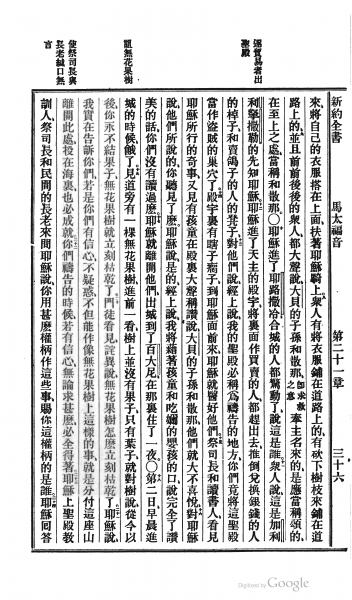 逐貿易者出
聖殿
詛無花果樹
使祭司長
長老緘口無
言
新約全書 馬太福音 第二十一章 三十六
來將自己的衣服搭在上面扶著耶穌騎上衆人有將衣服鋪在道路上的有砍下樹枝來鋪在道
路上的並且前前後後的衆人都大聲說大貝的子孫和散那卽求救之意奉主名來的是應當稱頌的
在至上之處當稱和散那○耶穌進了耶路撒冷合城的人都驚動了說這是誰衆人說這是加利
利拏撒勒的先知耶穌耶穌進了天主的殿宇將裏面作買賣的人都趕出去推倒兌換銀錢的人
的棹子和賣鴿子的人的凳子對他們說經上說我的聖殿必稱爲禱告的地方你們竟將這聖殿
當作盜賊的巢穴了殿宇裏有瞎子瘸子到耶穌面前來耶穌就醫好他們祭司長和讀書人看見
耶穌所行的奇事又見有孩童在殿裏大聲稱讚說大貝的子孫和散那他們就大不喜悅對耶穌
說他們所說的你聽見了麽耶穌說是的經上說我將藉著孩童和吃嬭的嬰孩的口說完全了讚
美的話你們沒有讀過麽耶穌就離開他們出城到了百大尼在那裏住了一夜○第二日早晨進
城的時候餓了見道旁有一棵無花果樹進前一看樹上並沒有果子只有葉子就對樹說從今以
後你永不結果子無花果樹就立刻枯乾了門徒看見詫異說無花果樹怎麽立刻枯乾了耶穌說
我實在告訴你們若是你們有信心不疑惑不但能作像無花果樹上這樣的事就是分付這座山
離開此處投在海裏也必成就你們禱告的時候若有信心無論求甚麽必全得著耶穌上聖殿敎
訓人祭司長和民間的長老來問耶穌說你用甚麽權柄作這些事賜你這權柄的是誰耶穌囘答
Digitized by Google